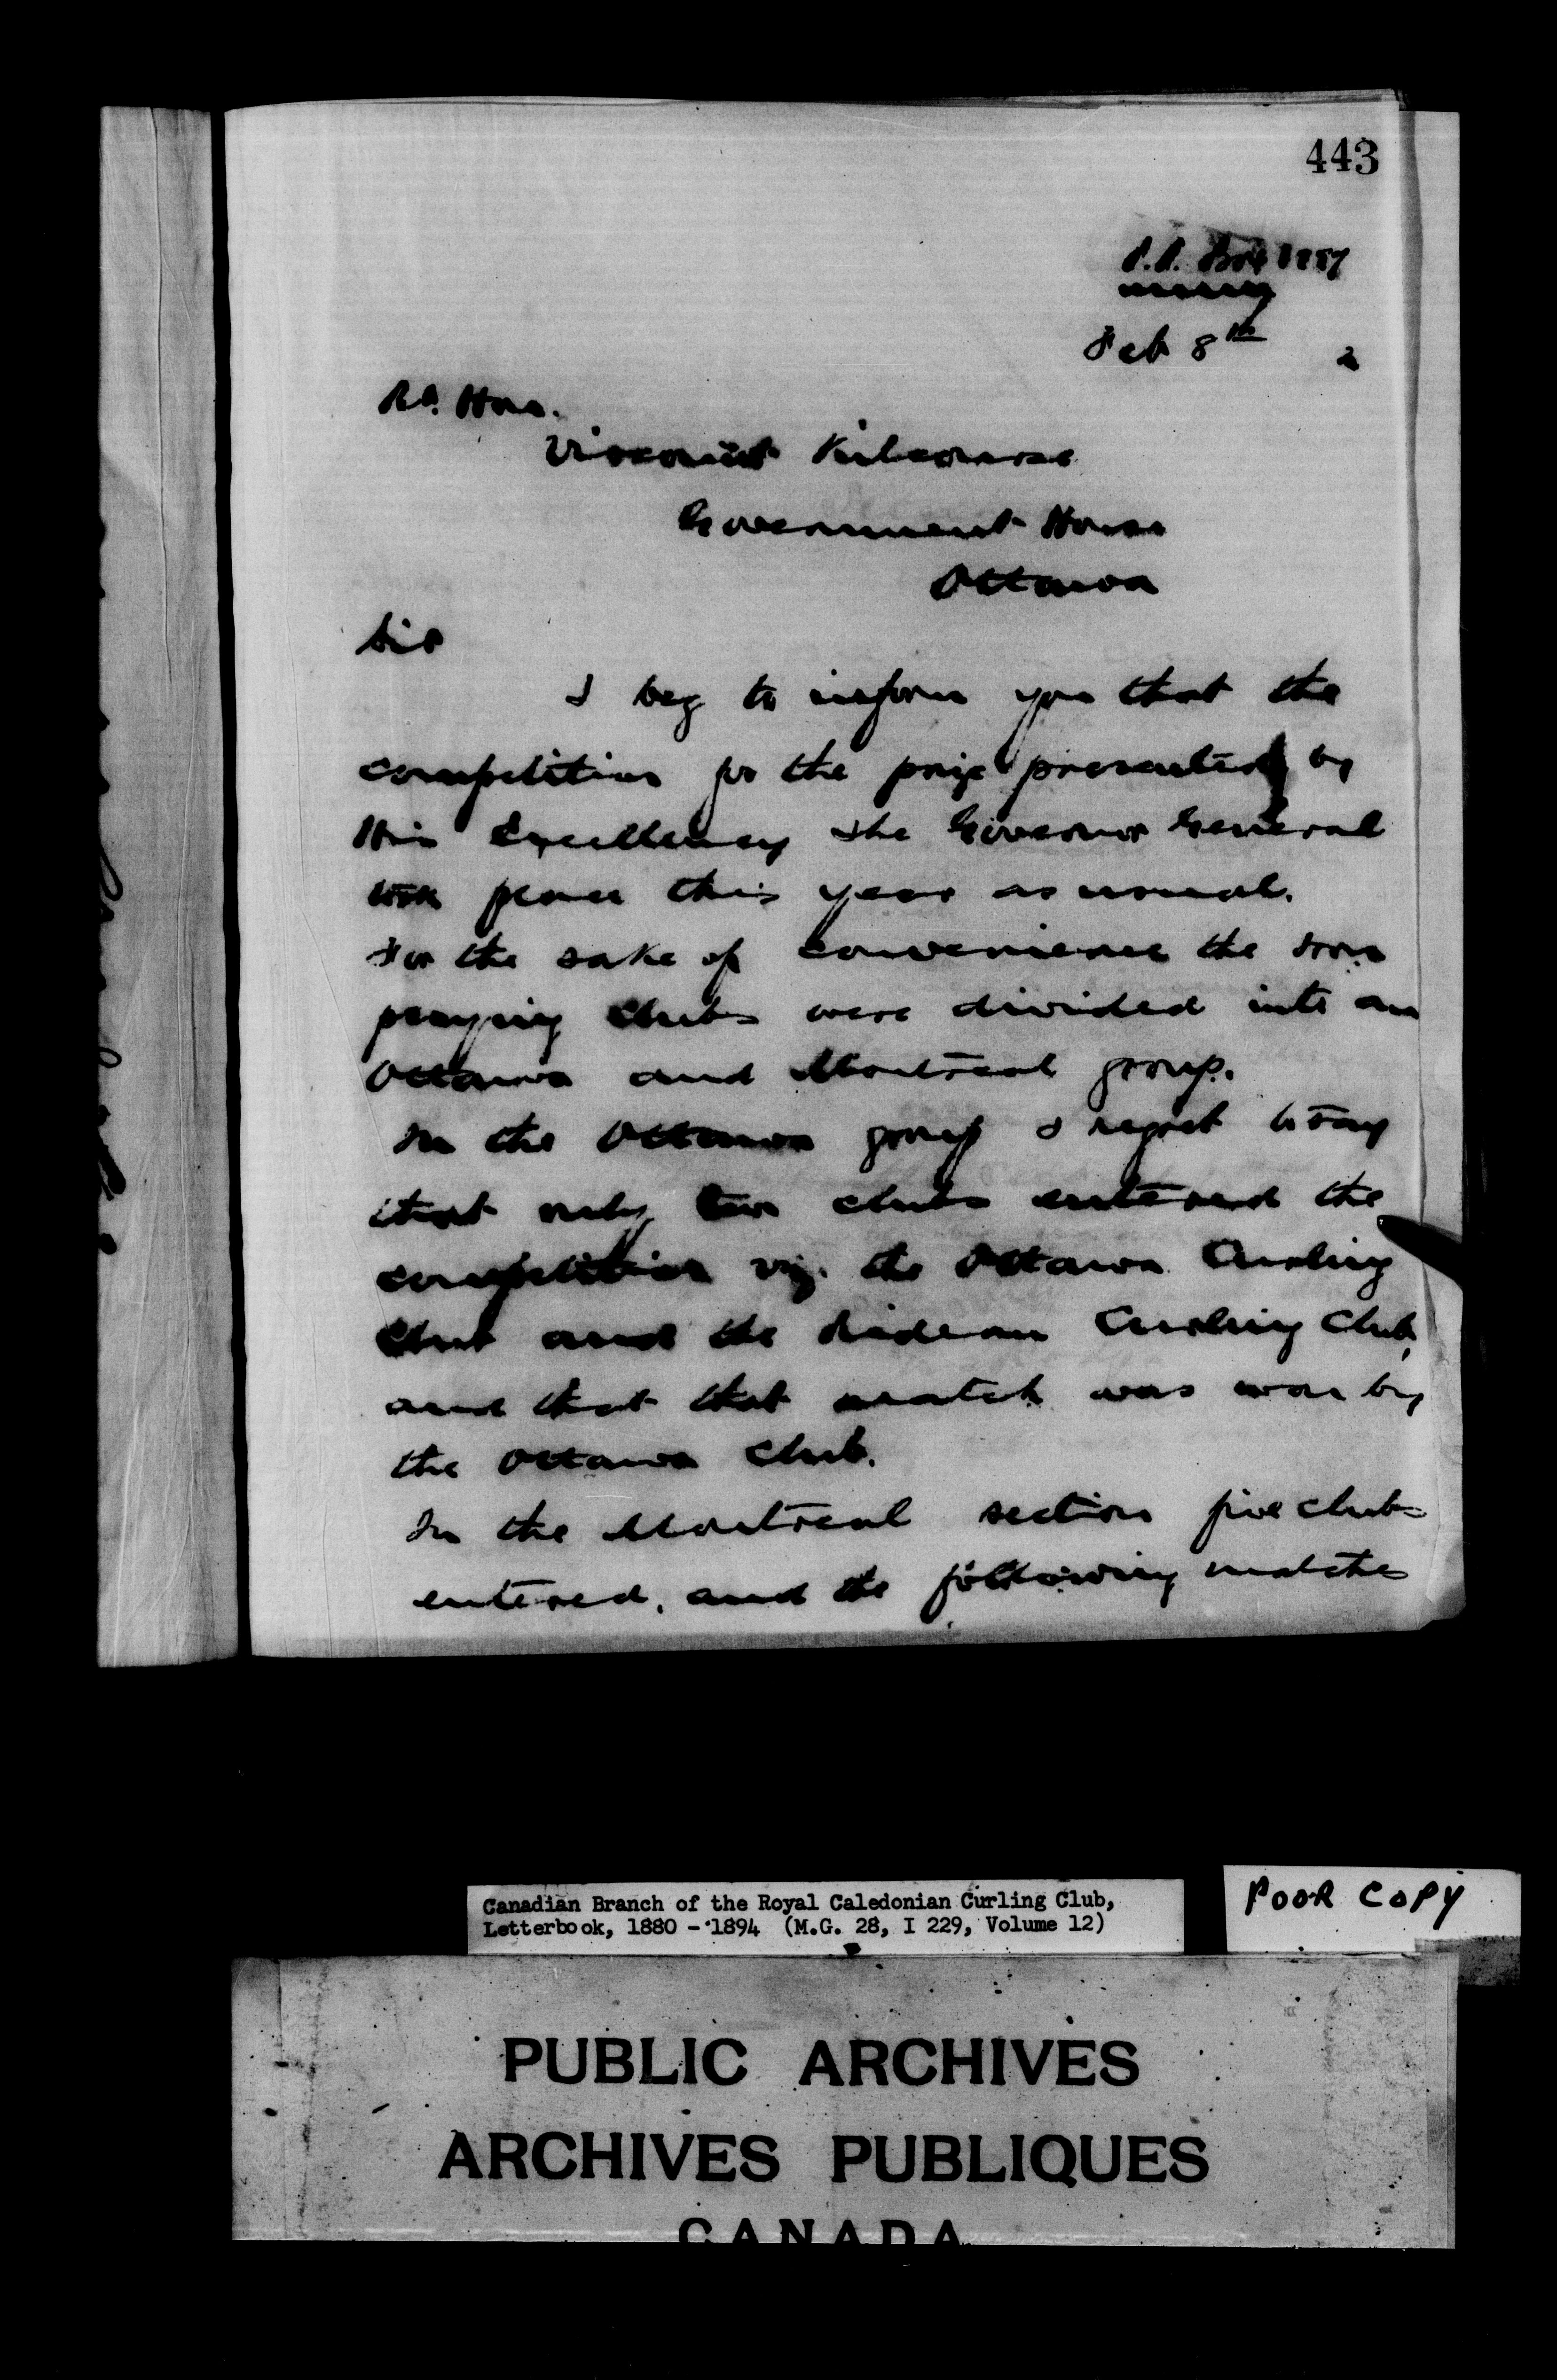 443
P.O. Box 1157
Feb 8th 2
Rt. Hon.
Viscount Kilcoursie
Government House
Ottawa
Sir
I beg to inform you that the
competition for the prize presented by
His Excellency the Governor General
took place this year as usual.
For the sake of convenience the
playing clubs were divided into an
Ottawa and Montreal group.
In the Ottawa group I regret to say
that only two clubs entered the
competition viz. the Ottawa Curling
Club and the Rideau Curling Club,
and that that match was won by
the Ottawa Club.
In the Montreal section five clubs
entered, and the following matches
Canadian Branch of the Royal Caledonian Curling Club,
Letterbook, 1880 - 1894 (M.G. 28, I 229, Volume 12)
POOR COPY
PUBLIC ARCHIVES
ARCHIVES PUBLIQUES
CANADA